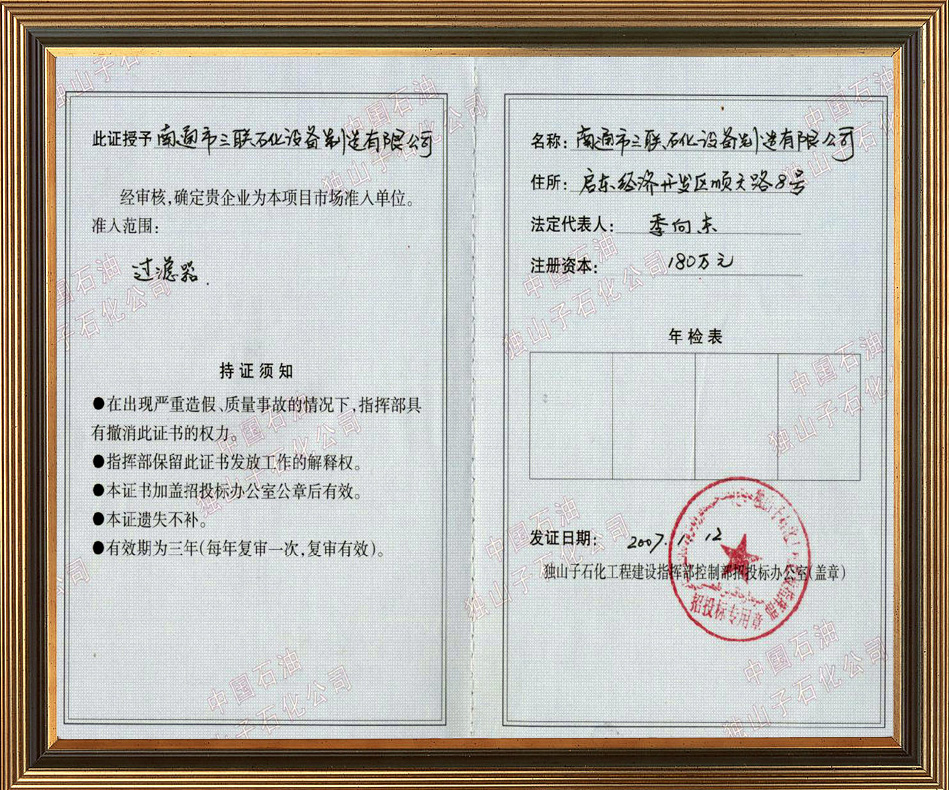 此证授予南通市三联石化设备制造有限公司
经审核,确定贵企业为本项目市场准入单位。
准入范围:
过滤器.
持证须知
●在出现严重造假、质量事故的情况下,指挥部具
有撤消此证书的权力。
●指挥部保留此证书发放工作的解释权。
●本证书加盖招投标办公室公章后有效。
●本证遗失不补。
●有效期为三年(每年复审一次,复审有效)。
名称:南通市三联石化设备制造有限公司
住所:启东经济开发区顺天路8号
法定代表人:季向东
注册资本:180万元
年检表
发证日期:2007.1.12
独山子石化工程建设指挥部控制部招投标办公室(盖章)
招投标专用章
中国石油
独山子石化公司